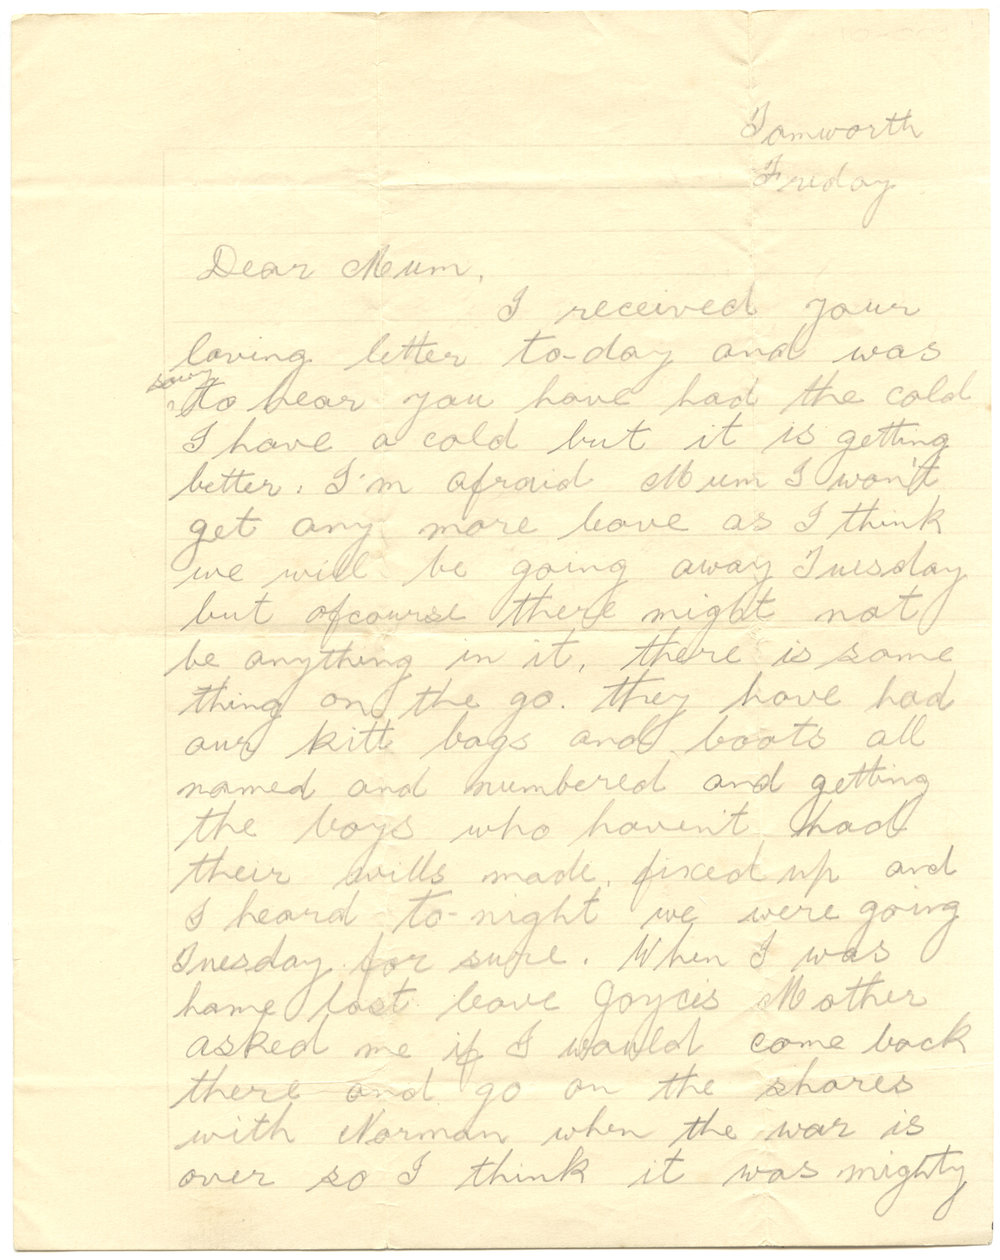 Tamworth
Friday
Dear Mum,
I received your
loving letter to-day and was
sorry
to hear you have had the cold
I have a cold but it is getting
better. I'm afraid Mum I won't
get any more leave as I think
we will be going away Tuesday
but ofcourse there might not
be anything in it, there is some
thing on the go. they have had
our kitt bags and boots all
named and numbered and getting
the boys who haven't had
their wills made, fixed up and
I heard to-night we were going
Tuesday for sure. When I was
home last leave Joyce's Mother
asked me if I would come back
there and go on the shares
with Norman when the war is
over so I think it was mighty